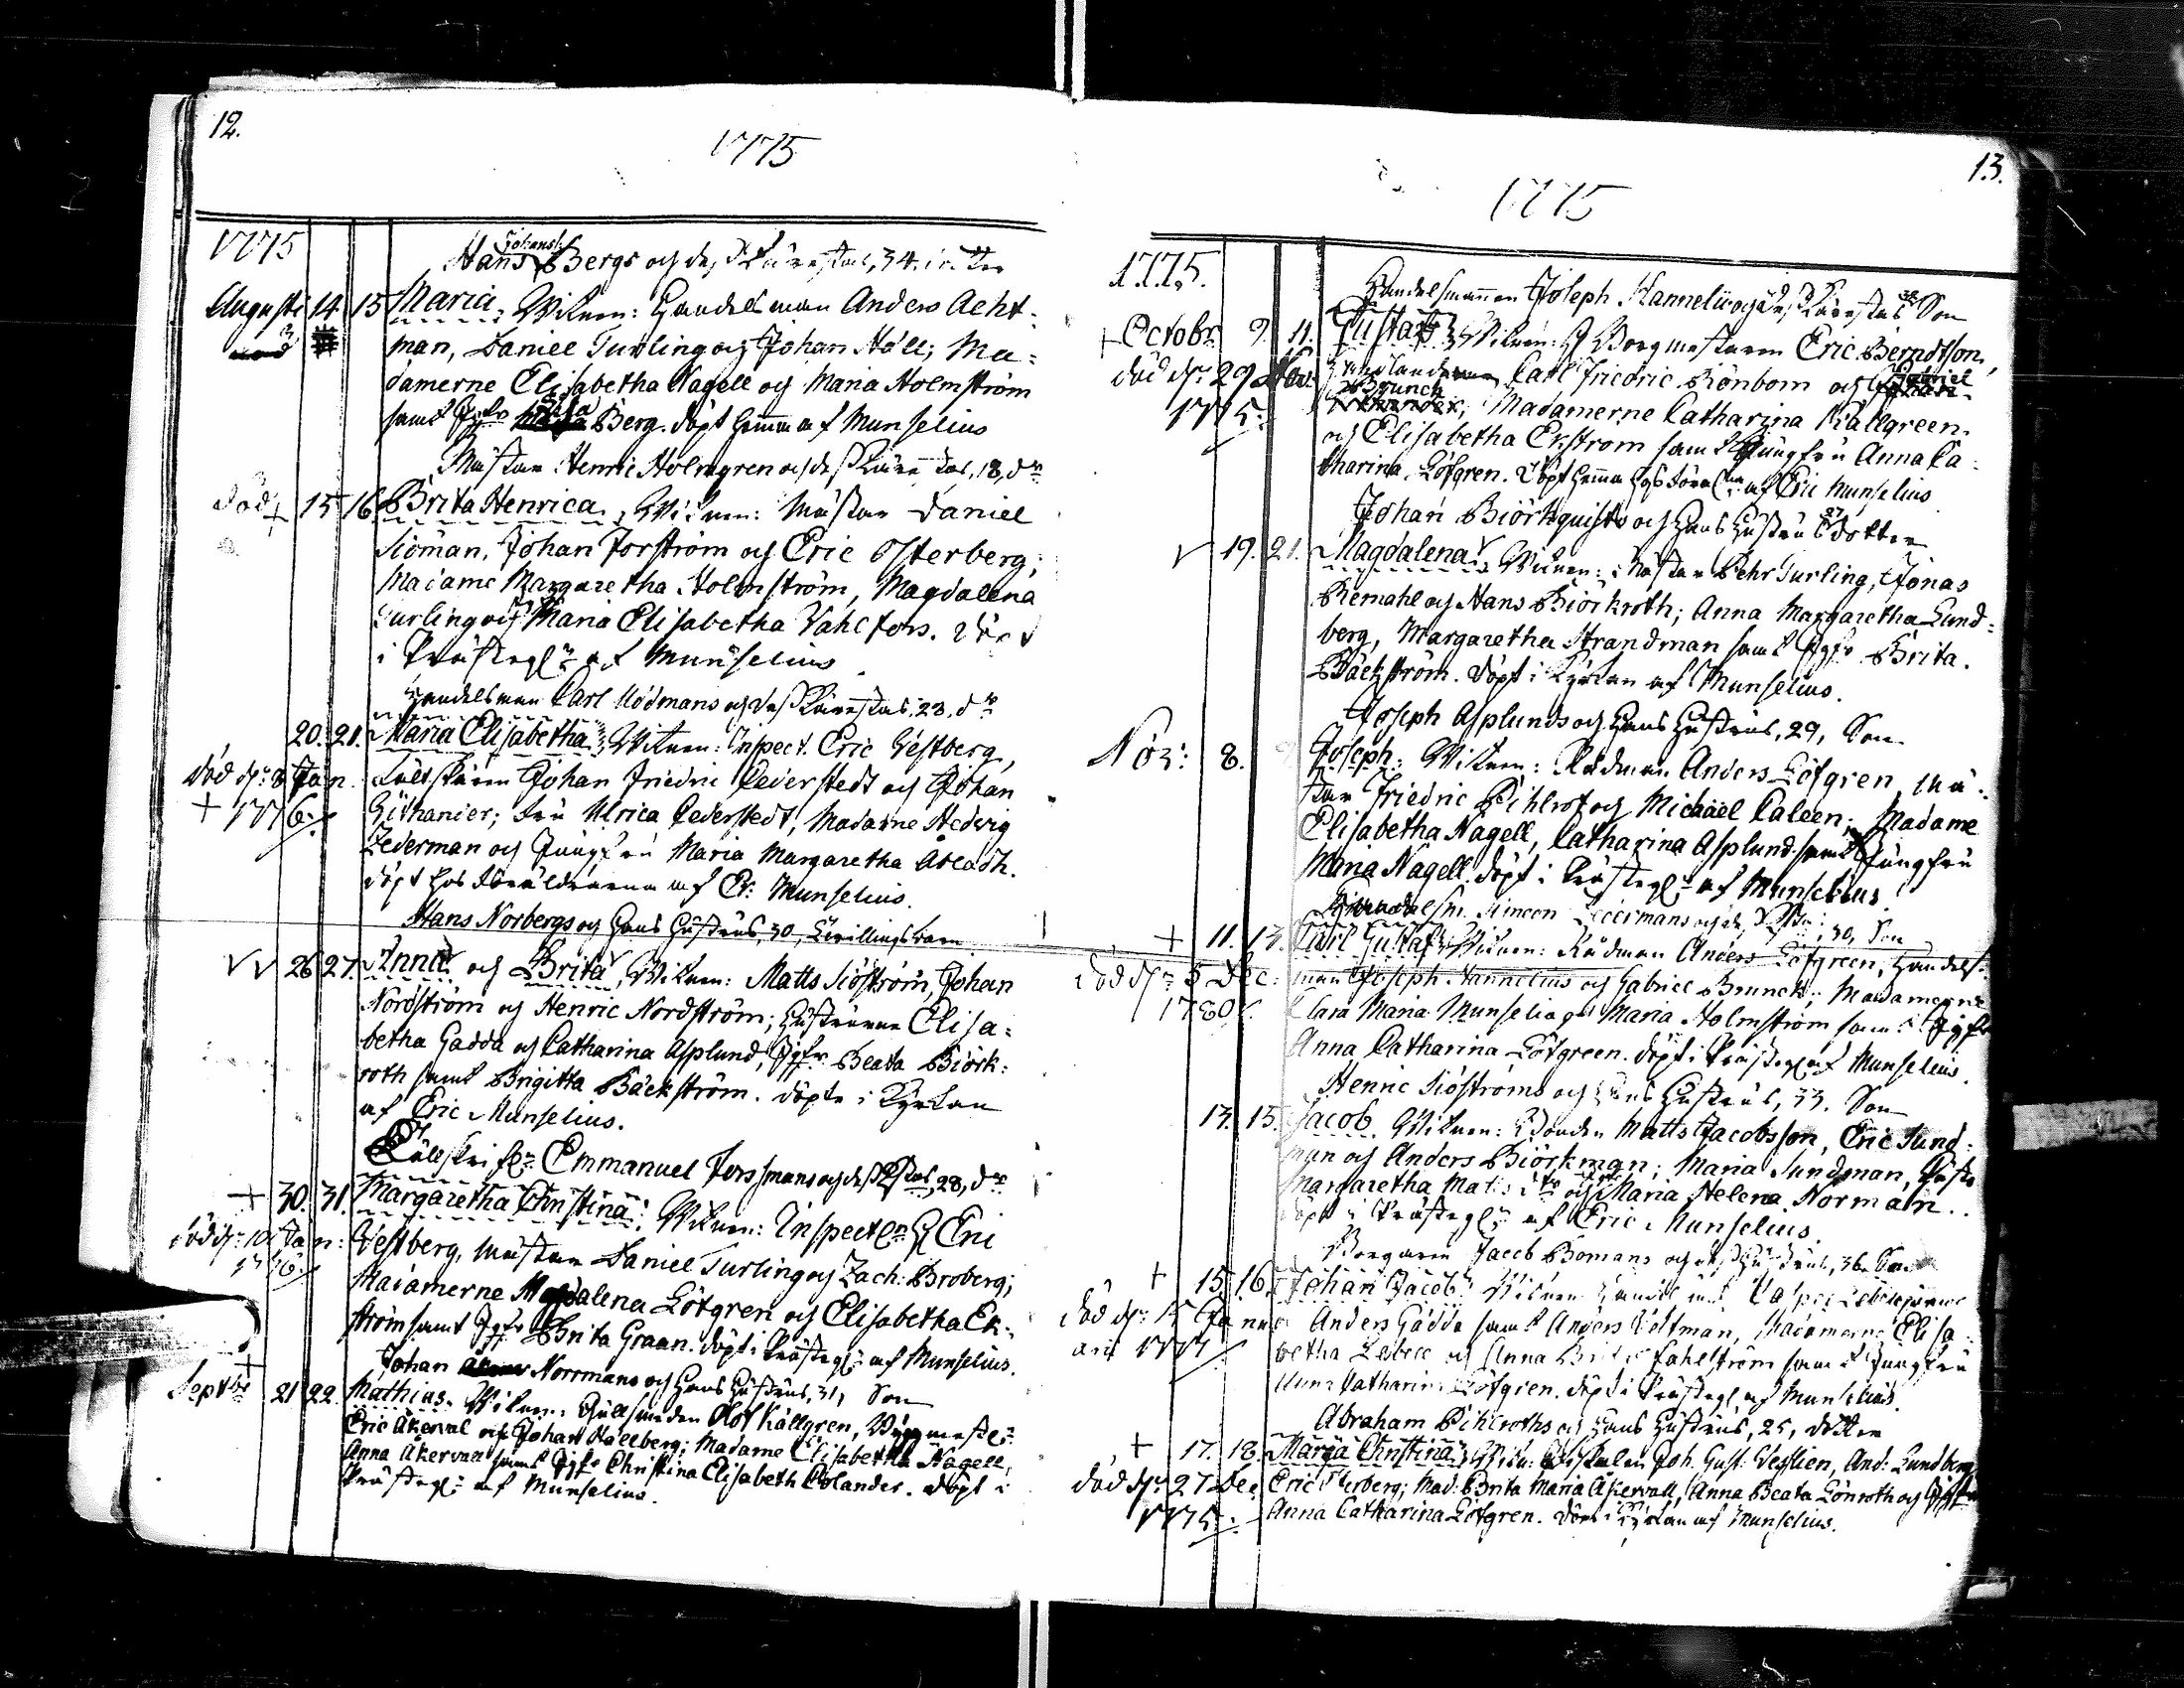 12.
1775
1775
Johans:
Hans Bergs och dess Kärestas, 34, dotter
Augusti 14 15 Maria; Witnen: Handelsman Anders Acht-
man, Daniel Turling och Johan Höll; Ma-
damerne Elisabetha Nagell och Maria Holmström
samt Jgfr Berg. döpt hemma af Munselius
Mästar Henric Holmgren och dess Kärestas, 18, dr
död + 15 16 Brita Henrica, Witnen: Mästar Daniel
Siöman, Johan Forström och Eric Österberg;
Madame Margaretha Holmström, Magdalena
Turling och Maria Elisabetha Vahlfors. döpt
i Prästeg: af Munselius
Handelsman Carl Mödmans och dess Kärestas, 23, dr
20. 21. Maria Elisabetha; Witnen: Inspect. Eric Vestberg,
död d: 8 Jan. Fältskären Johan Friedric Cederstedt och Johan
+ 1776. Githanier; Fru Ulrica Cederstedt, Madame Hedvig
Zederman och Jungfru Maria Margaretha
döpt hos Föräldrarna af Er: Munselius.
Hans Norbergs och Hans Hustrus, 30, Tvillingsbarn
26 27. Anna och Brita, Witnen: Matts Siöström, Johan
Nordström och Henric Nordström; Hustrurne Elisa-
betha Gadda och Catharina Asplund, Jgfr Beata Biörk-
roth samt Brigitta Bäckström. döpte i Kyrkan
af Eric Munselius.
Emmanuel Forssmans och dess K:stas, 28, dr
+ 30. 31. Margaretha Christina; Witnen: Inspect: H Eric
död d: 10 Jan: Vestberg, Mästar Daniel Turling och Zach: Broberg;
1776. Madamerne Magdalena Löfgren och Elisabetha Ek-
ström samt Jgfr Brita Graan. döpt i Prästeg: af Munselius.
Johan Norrmans och Hans Hustrus, 31, Son
Septbr 21 22. Mathias. Witnen: Gullsmeden Olof Källgren,
Eric Åkerval och Johan Hallberg; Madame Elisabetha Nagell,
Anna Åkervall samt Jgfr Christina Elisabeth Polander. döpt i
Prästeg: af Munselius.
13.
1775
1775.
Handelsmannen Joseph Hannelii och dess Kärestas Son
+ Octobr 9. 11. Gustaf; Witnen: H Borgmästaren Eric Berndtson,
död d: 29 Carl Friedric Rönbom och Gabriel
1775. Brunck; Madamerne Catharina Källgreen
och Elisabetha Ekström samt Jungfru Anna Ca-
tharina Löfgren. döpt hemma hos af Eric Munselius
27
Johan Biörkquists och Hans Hustrus dotter
19. 21. Magdalena; Witnen: Mästar Pehr Turling, Jonas
Remahl och Hans Biörkroth; Anna Margaretha Lund-
berg, Margaretha Strandman samt Jgfr Brita
Bäckström. döpt i Kyrkan af Munselius.
Joseph Asplunds och Hans Hustrus, 29, Son
Nov: 8. Joseph; Witnen: Rådman Anders Löfgren, Mä-
star Friedric Pihlrot och Michael Caleen; Madame
Elisabetha Nagell, Catharina Asplund samt Jungfru
Maria Nagell. döpt i Prästeg: af Munselius.
Simeon Zedermans och 30, Son
+ 11. 13. Carl Gustaf; Witnen: Rådman Anders Löfgreen, Handels-
död d: 5 Dec: man Joseph Hannelius och Gabriel Brunck; Madamerne
1780. Clara Maria Munselia och Maria Holmström samt Jgfr
Anna Catharina Löfgreen. döpt i Prästeg: af Munselius.
Henric Siöströms och Hans Hustrus, 33, Son
13. 15. Jacob. Witnen: Bonden Matts Jacobsson, Eric Sund-
man och Anders Biörkman; Maria Sundman,
Margaretha och Maria Helena Norman.
döpt i Prästeg: af Eric Munselius.
Borgaren Jacob Bomans och dess Hustrus, 36, Son
+ 15. 16. Johan Jacob; Witnen
död d: 15 Janu- Anders Gadda samt Anders Veltman, Madamerne Elisa-
arii 1777. betha och Anna Fahlström samt Jungfru
Anna Catharina Löfgren. döpt i Prästeg: af Munselius.
Abraham Pihlroths och Hans Hustrus, 25, dotter
+ 17. 18. Maria Christina; Witn: Joh. Gust: Veslien, And: Lundberg
död d: 27 Dec. Eric Österberg; Mad: Brita Maria Åkervall, Anna Beata Lönroth och Jgfr
1775. Anna Catharina Löfgren. döpt i Kyrkan af Munselius.